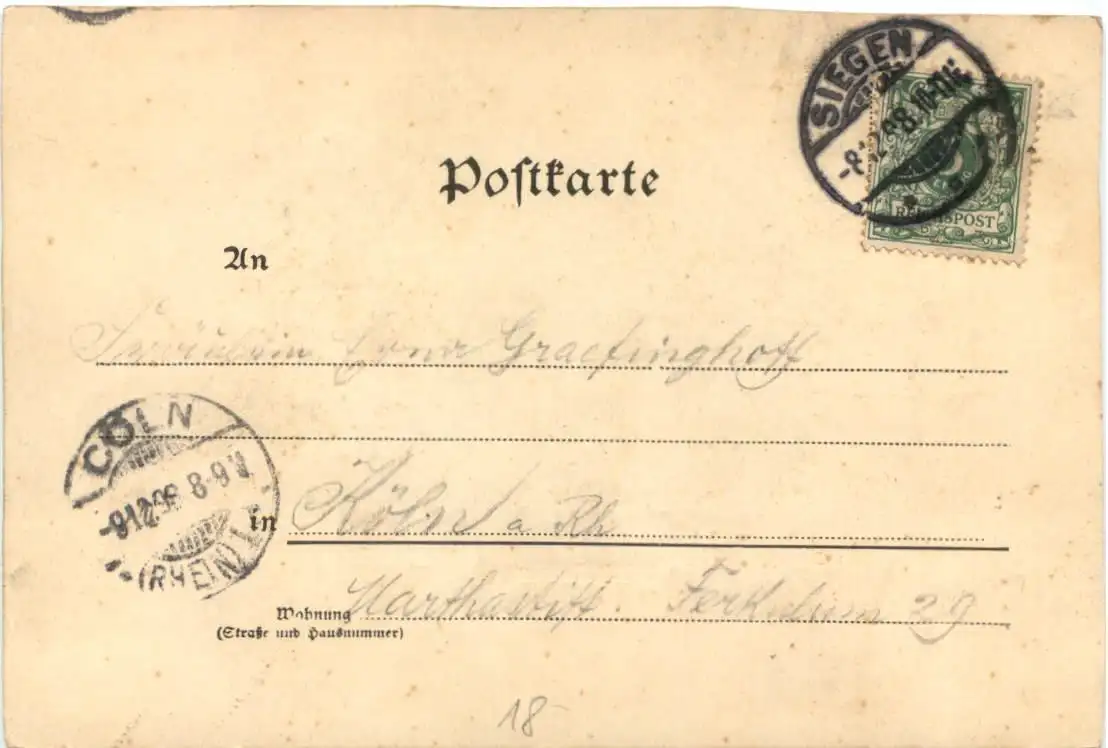 SIEGEN
-8.12.98.10-11N.
REICHSPOST
Postkarte
An
Fräulein Erna Graefinghoff
CÖLN
-9.12.98 8-9V
(RHEIN)
in Köln a Rh
Marthastift. Ferkulum 29
Wohnung
(Straße und Hausnummer)
18-